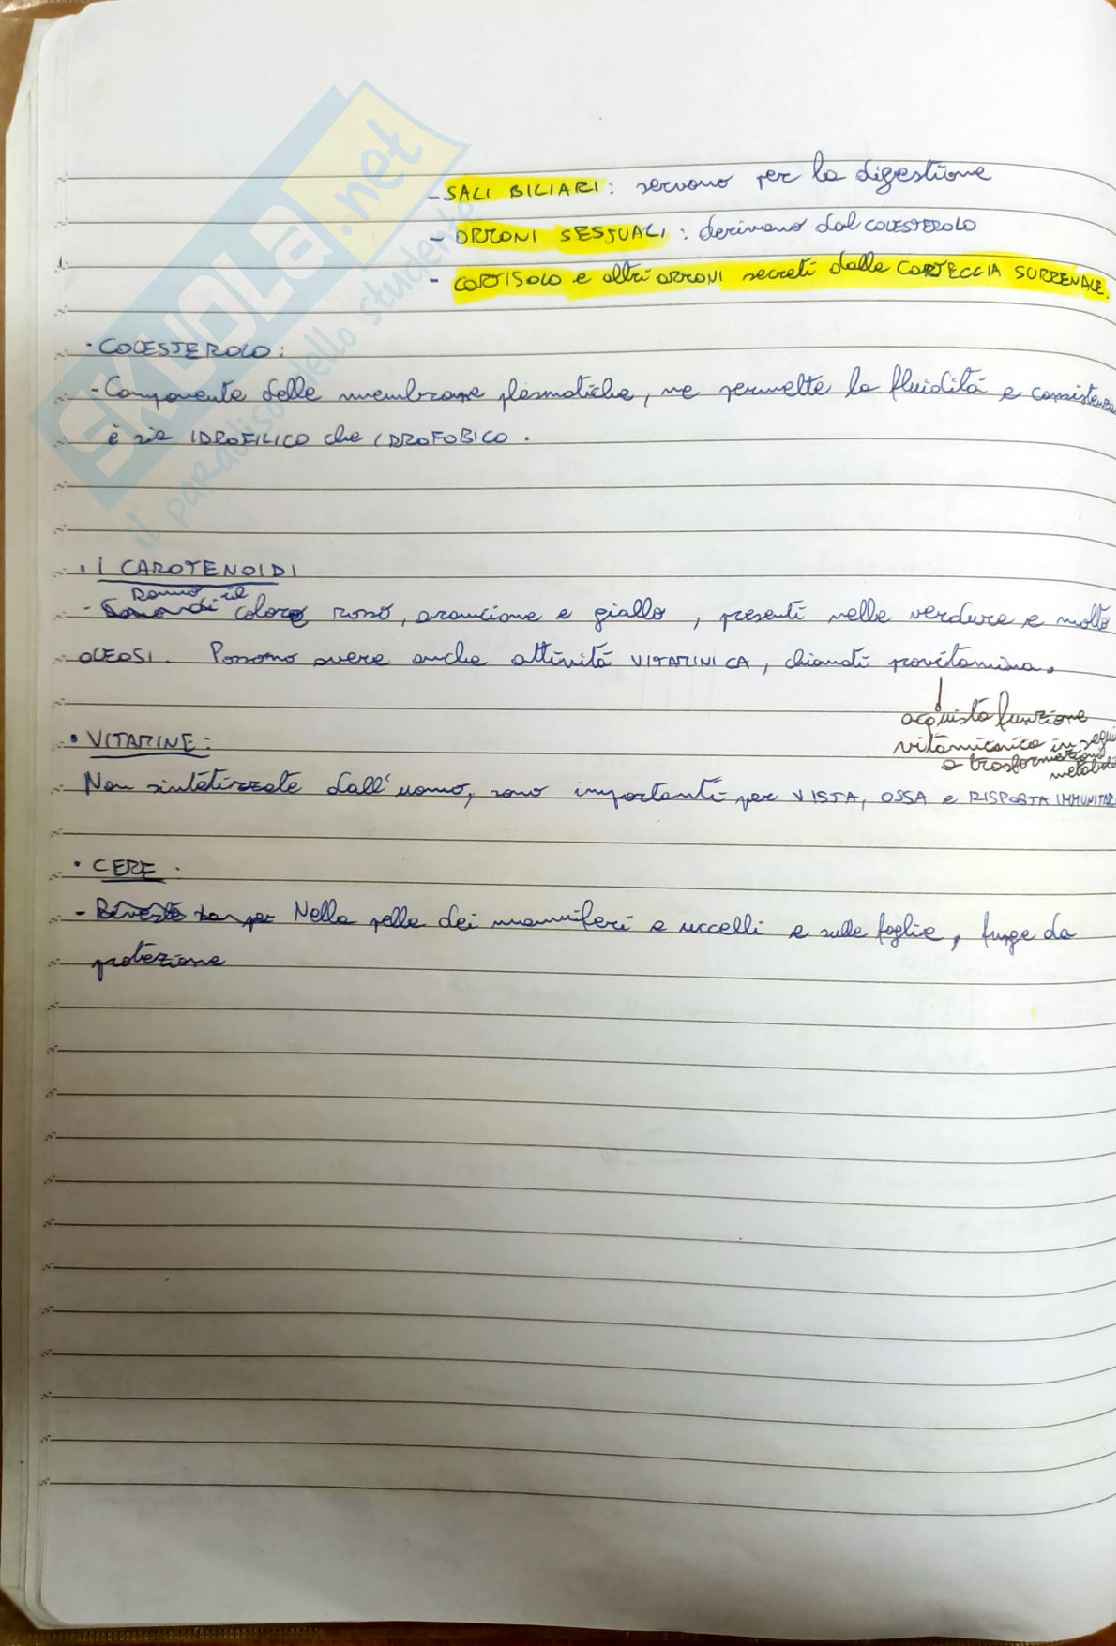 - SALI BILIARI: servono per la digestione
- ORMONI SESSUALI: derivano dal COLESTEROLO
- CORTISOLO e altri ORMONI secreti dalla CORTECCIA SURRENALE.
• COLESTEROLO:
- Componente delle membrane plasmatiche, ne permette la fluidità e consistenza
è sia IDROFILICO che IDROFOBICO.
• I CAROTENOIDI
Danno il
- colore rosso, arancione e giallo, presenti nelle verdure e molto
OLEOSI. Possono avere anche attività VITAMINICA, chiamati provitamina.
acquista funzione
vitaminica in segui
a trasformazioni
metaboli
• VITAMINE:
Non sintetizzate dall'uomo, sono importanti per VISTA, OSSA e RISPOSTA IMMUNITAR
• CERE.
- Nella pelle dei mammiferi e uccelli e sulle foglie, funge da
protezione
SKUOLA.net
il paradiso dello studente